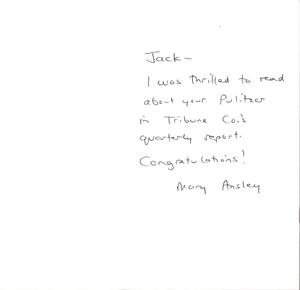 Jack-
I was thrilled to read
about your Pulitzer
in Tribune Co.'s
quarterly report.
Congratulations!
Mary Ansley